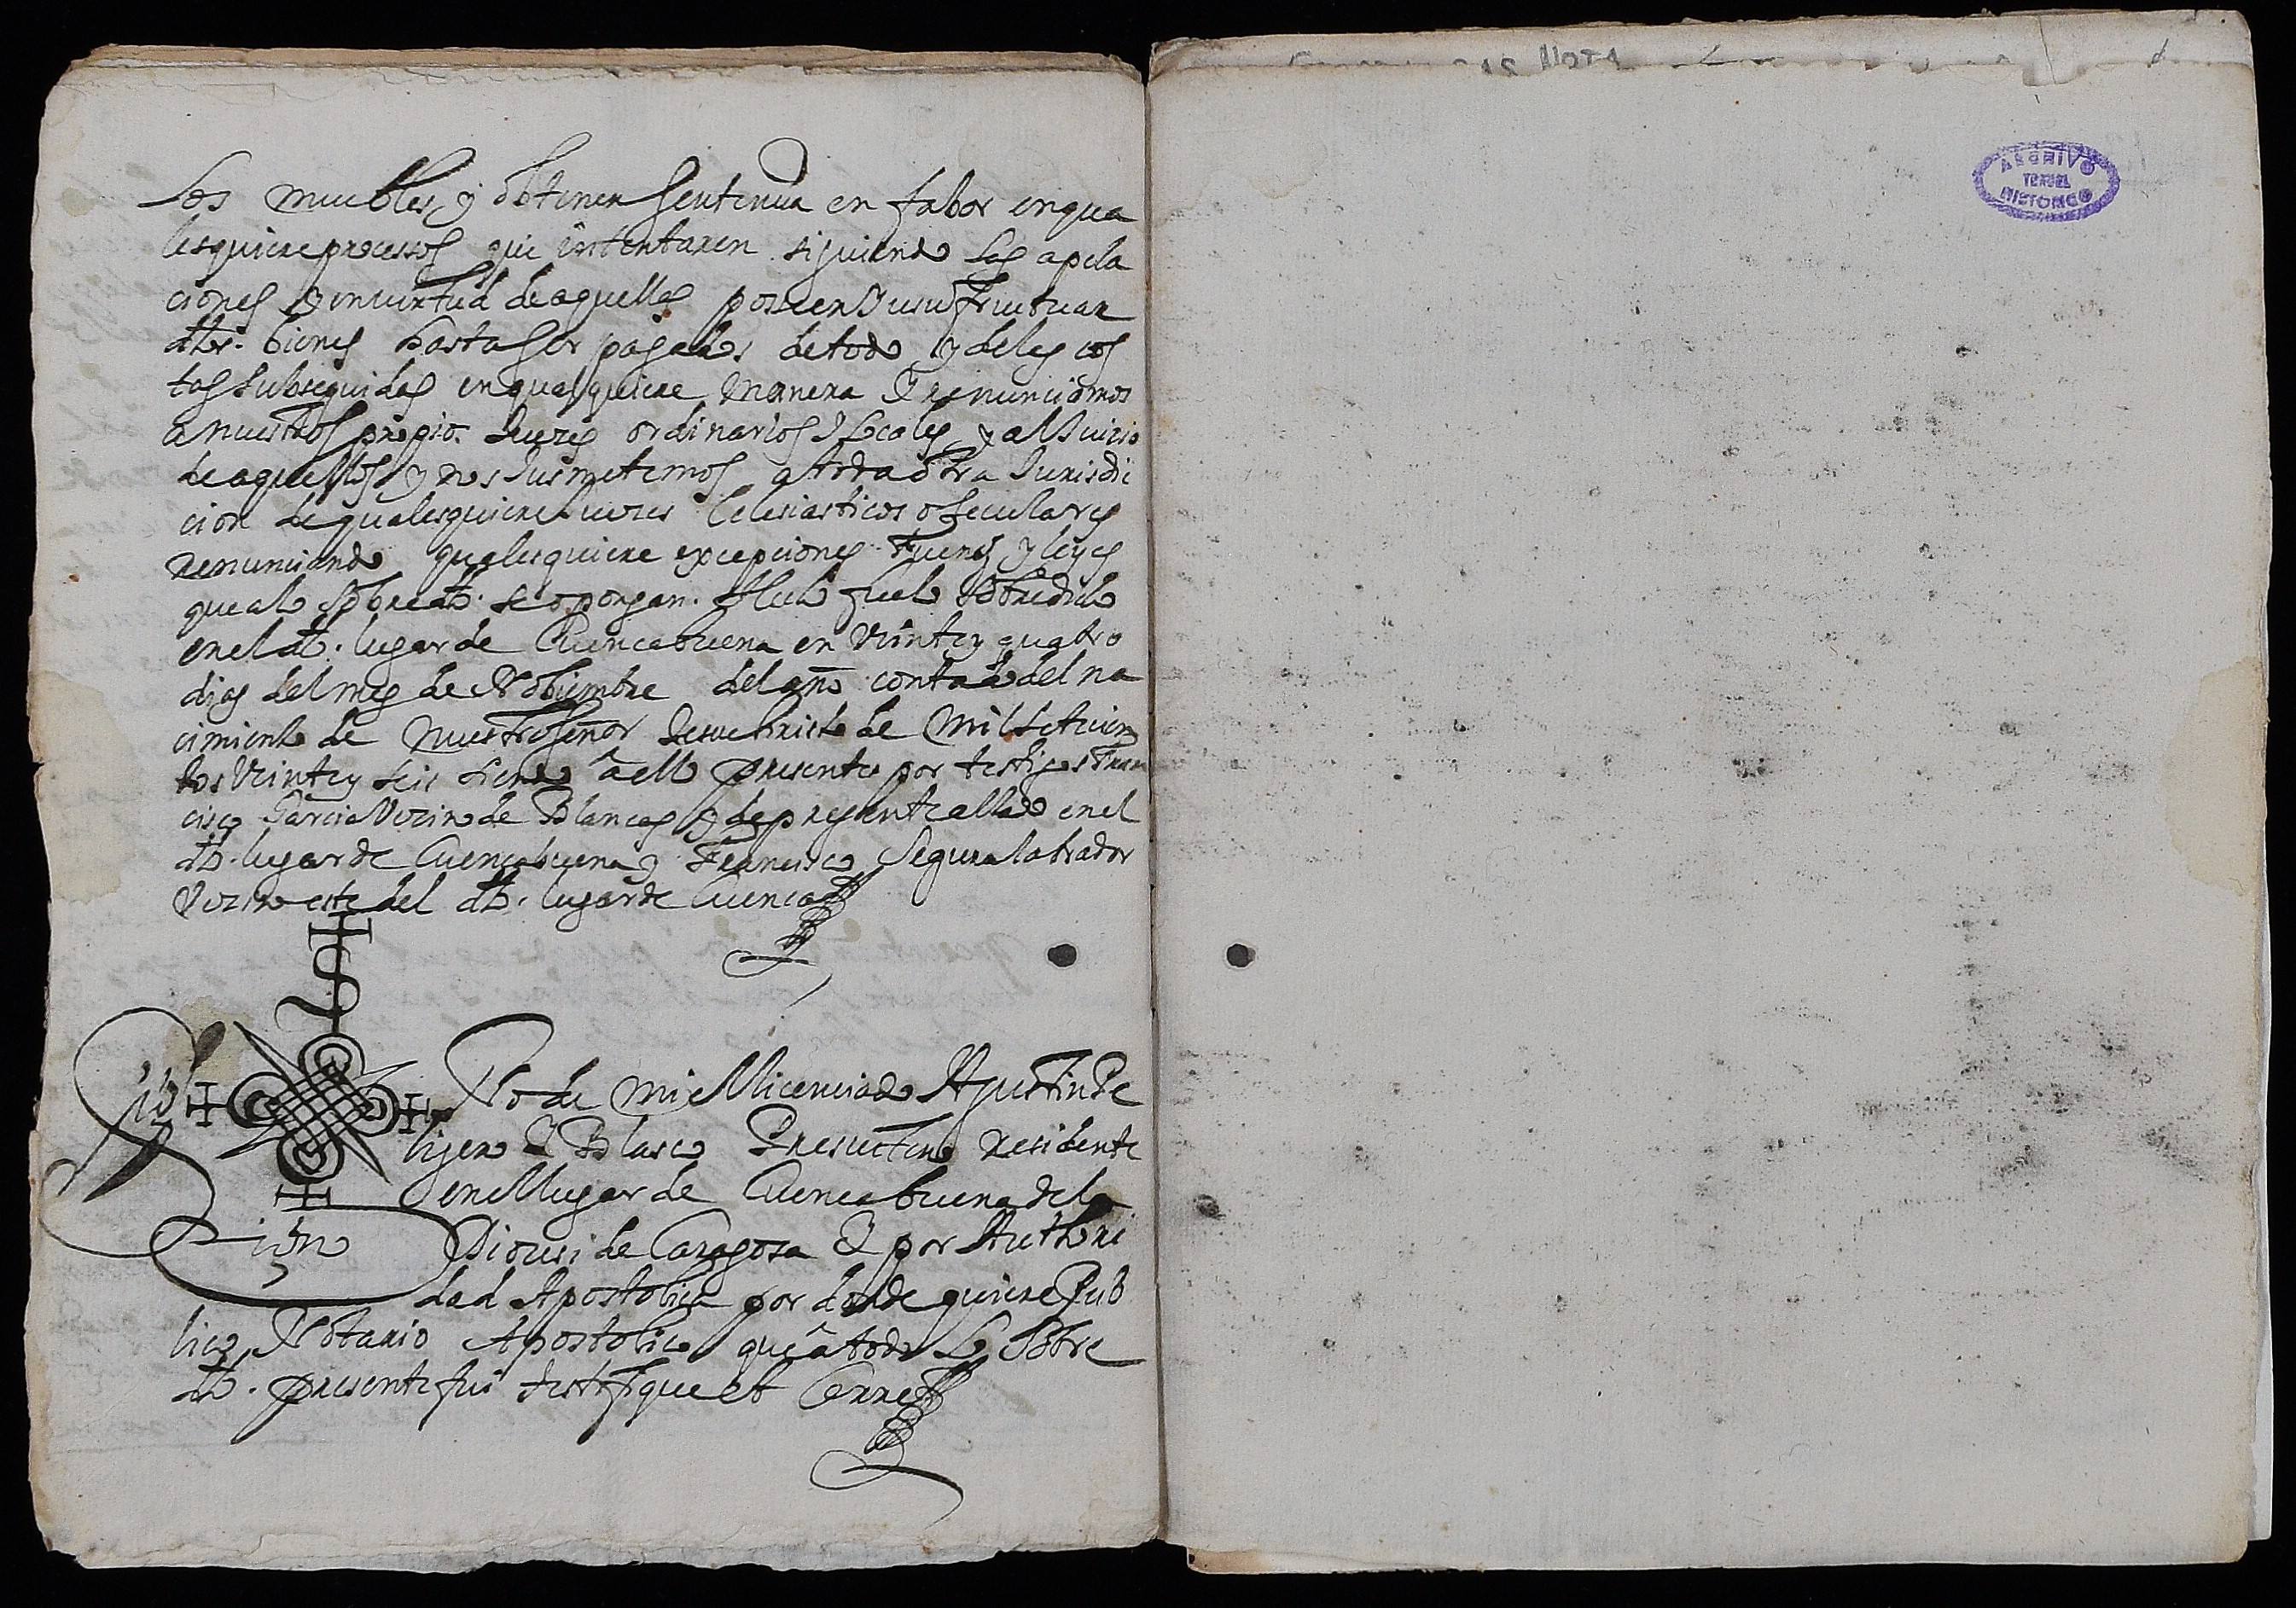 los muebles y obtener sentencia en fabor en qua
lesquiere processos que intentaren siguiendo las apela
ciones y en virtud de aquellas posseer y usufructuar
dhos. bienes hasta ser pagados de todo y de las cos
tas subseguidas en qualquiere manera E renunciamos
a nuestros propios Juezes ordinarios y locales y al Juizio
de aquellos y nos Jusmetemos a toda otra Jurisdic
cion de qualesquiere Juezes Eclesiasticos o seculares
renunciando qualesquiere excepciones fueros y leyes
que a lo sobredho. se opongan. Hecho fue lo sobredicho
en el dho. lugar de Cuencabuena en Veinte y quatro
dias del mes de Nobiembre del año contado del na
cimiento de Nuestro Señor Jesuchristo de Mil setecien
tos Veinte y seis siendo a ello presentes por testigos Fran
cisco Garcia Vecino de Blancas y de presente allado en el
dho. lugar de Cuencabuena y Francisco Segura labrador
Vezino este del dho. lugar de Cuenca
Sig
no de mi el Licenciado Agustin Pe
liger y Blasco Presvitero residente
en el lugar de Cuencabuena de la
Diocesi de Caragoza E por Authori
dad Apostolica por donde quiere Pub
lico Notario Apostolico que a todo lo sobre
dho. presente fui testifique et Cerre
ARCHIVO
TERUEL
HISTORICO